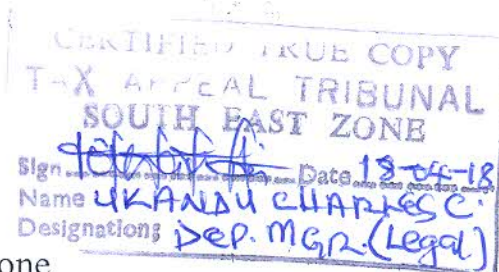 CERTIFIED TRUE COPY
TAX APPEAL TRIBUNAL
SOUTH EAST ZONE
Sign Date 18-04-18
Name UKANDU CHARLES C.
Designation: DEP. MGR. (Legal)
one